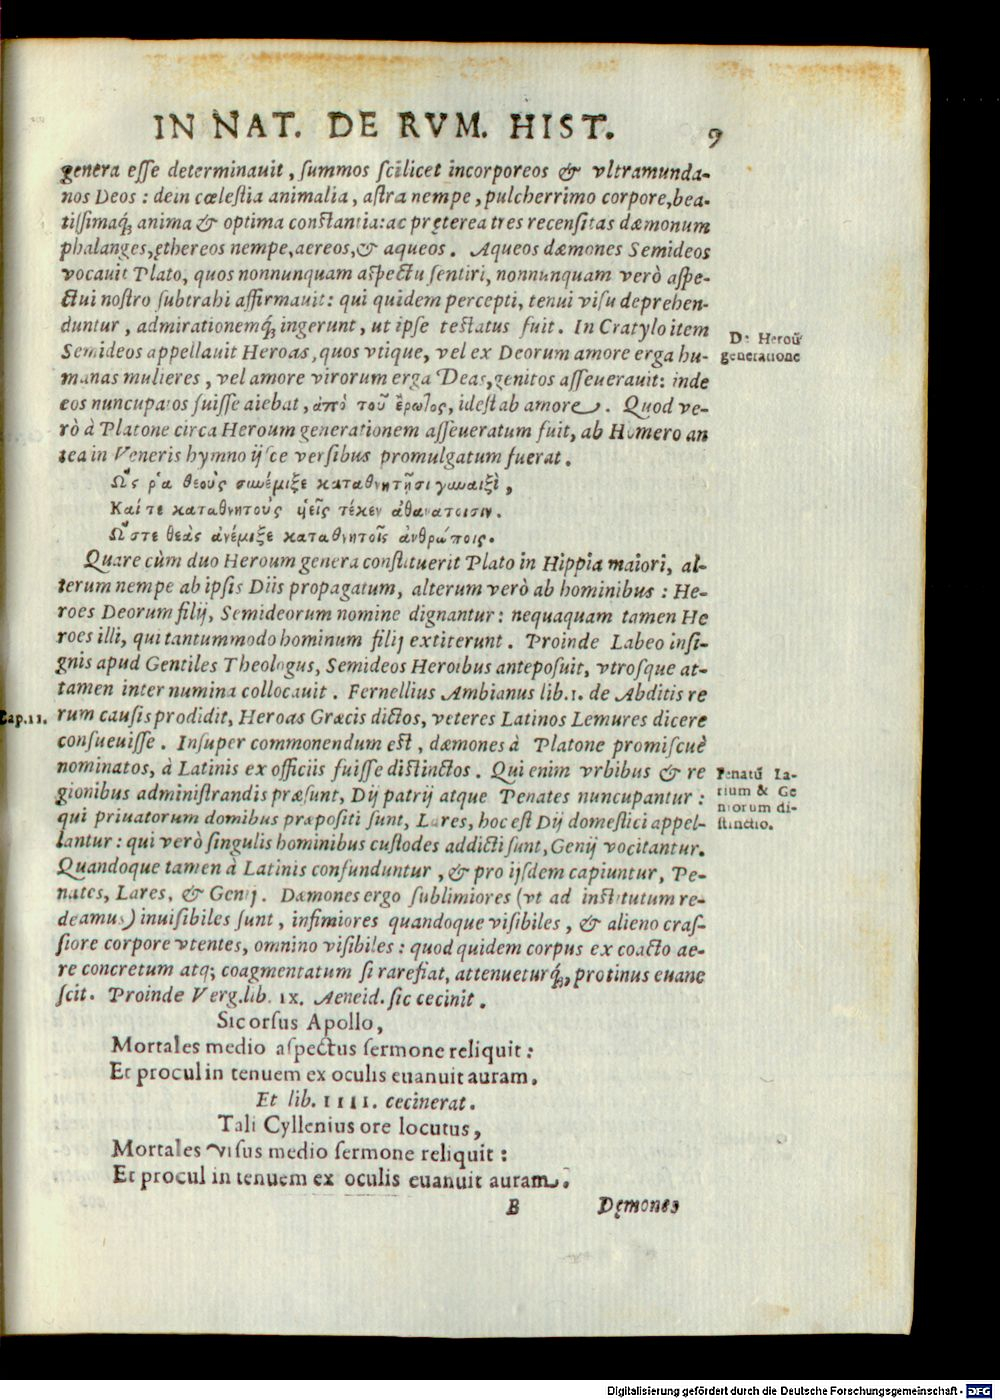 IN NAT. DE RVM. HIST. 9
genera esse determinauit, summos scilicet incorporeos & vltramunda-
nos Deos: dein cœlestia animalia, astra nempe, pulcherrimo corpore, bea-
tissimaq́; anima & optima constantia: ac pręterea tres recensitas dæmonum
phalanges, ęthereos nempe, aereos, & aqueos. Aqueos dæmones Semideos
vocauit Plato, quos nonnunquam aspectu sentiri, nonnunquam verò aspe-
ctui nostro subtrahi affirmauit: qui quidem percepti, tenui visu deprehen-
duntur, admirationemq́; ingerunt, ut ipse testatus fuit. In Cratylo item
De Heroũ
Semideos appellauit Heroas, quos vtique, vel ex Deorum amore erga hu-
generatione
manas mulieres, vel amore virorum erga Deas, genitos asseuerauit: inde
eos nuncupatos fuisse aiebat, ἀπὸ τοῦ ἔρωτος, idest ab amore. Quod ve-
rò à Platone circa Heroum generationem asseueratum fuit, ab Homero an
tea in Veneris hymno ijsce versibus promulgatum fuerat.
Ὥς ῥα θεοὺς συνέμιξε καταθνητῇσι γυναιξὶ,
Καί τε καταθνητοὺς ὑεῖς τέκεν ἀθανατοισιν.
Ὥστε θεὰς ἀνέμιξε καταθνητοῖς ἀνθρώποις.
Quare cùm duo Heroum genera constituerit Plato in Hippia maiori, al-
terum nempe ab ipsis Diis propagatum, alterum verò ab hominibus: He-
roes Deorum filij, Semideorum nomine dignantur: nequaquam tamen He
roes illi, qui tantummodo hominum filij extiterunt. Proinde Labeo insi-
gnis apud Gentiles Theologus, Semideos Heroibus anteposuit, vtrosque at-
tamen inter numina collocauit. Fernellius Ambianus lib. 1. de Abditis re
Cap. 11.
rum causis prodidit, Heroas Græcis dictos, veteres Latinos Lemures dicere
consueuisse. Insuper commonendum est, dæmones à Platone promiscuè
nominatos, à Latinis ex officiis fuisse distinctos. Qui enim vrbibus & re
Penatũ La-
rium & Ge
niorum di-
stinctio.
gionibus administrandis præsunt, Dij patrij atque Penates nuncupantur:
qui priuatorum domibus præpositi sunt, Lares, hoc est Dij domestici appel-
lantur: qui verò singulis hominibus custodes addicti sunt, Genij vocitantur.
Quandoque tamen à Latinis confunduntur, & pro ijsdem capiuntur, Pe-
nates, Lares, & Genij. Dæmones ergo sublimiores (vt ad institutum re-
deamus) inuisibiles sunt, infimiores quandoque visibiles, & alieno cras-
siore corpore vtentes, omnino visibiles: quod quidem corpus ex coacto ae-
re concretum atq; coagmentatum si rarefiat, attenueturq́;, protinus euane
scit. Proinde Verg. lib. IX. Aeneid. sic cecinit.
Sic orsus Apollo,
Mortales medio aspectus sermone reliquit:
Et procul in tenuem ex oculis euanuit auram.
Et lib. IIII. cecinerat.
Tali Cyllenius ore locutus,
Mortales visus medio sermone reliquit:
Et procul in tenuem ex oculis euanuit auram.
B Dęmones
Digitalisierung gefördert durch die Deutsche Forschungsgemeinschaft - DFG